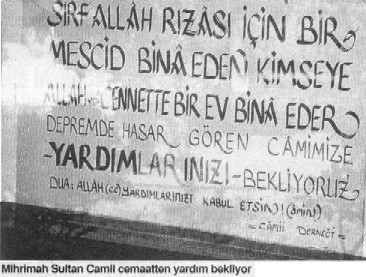 SIRF ALLÂH RIZÂSI İÇİN BİR
MESCİD BİNÂ EDEN KİMSEYE
ALLÂH CENNETTE BİR EV BİNÂ EDER
DEPREMDE HASAR GÖREN CÂMİMİZE
-YARDIMLARINIZI-BEKLİYORUZ
DUA: ALLÂH (cc) YARDIMLARINIZI KABUL ETSİN! (âmin)
- CAMİİ DERNEĞİ -
Mihrimah Sultan Camii cemaatten yardım bekliyor